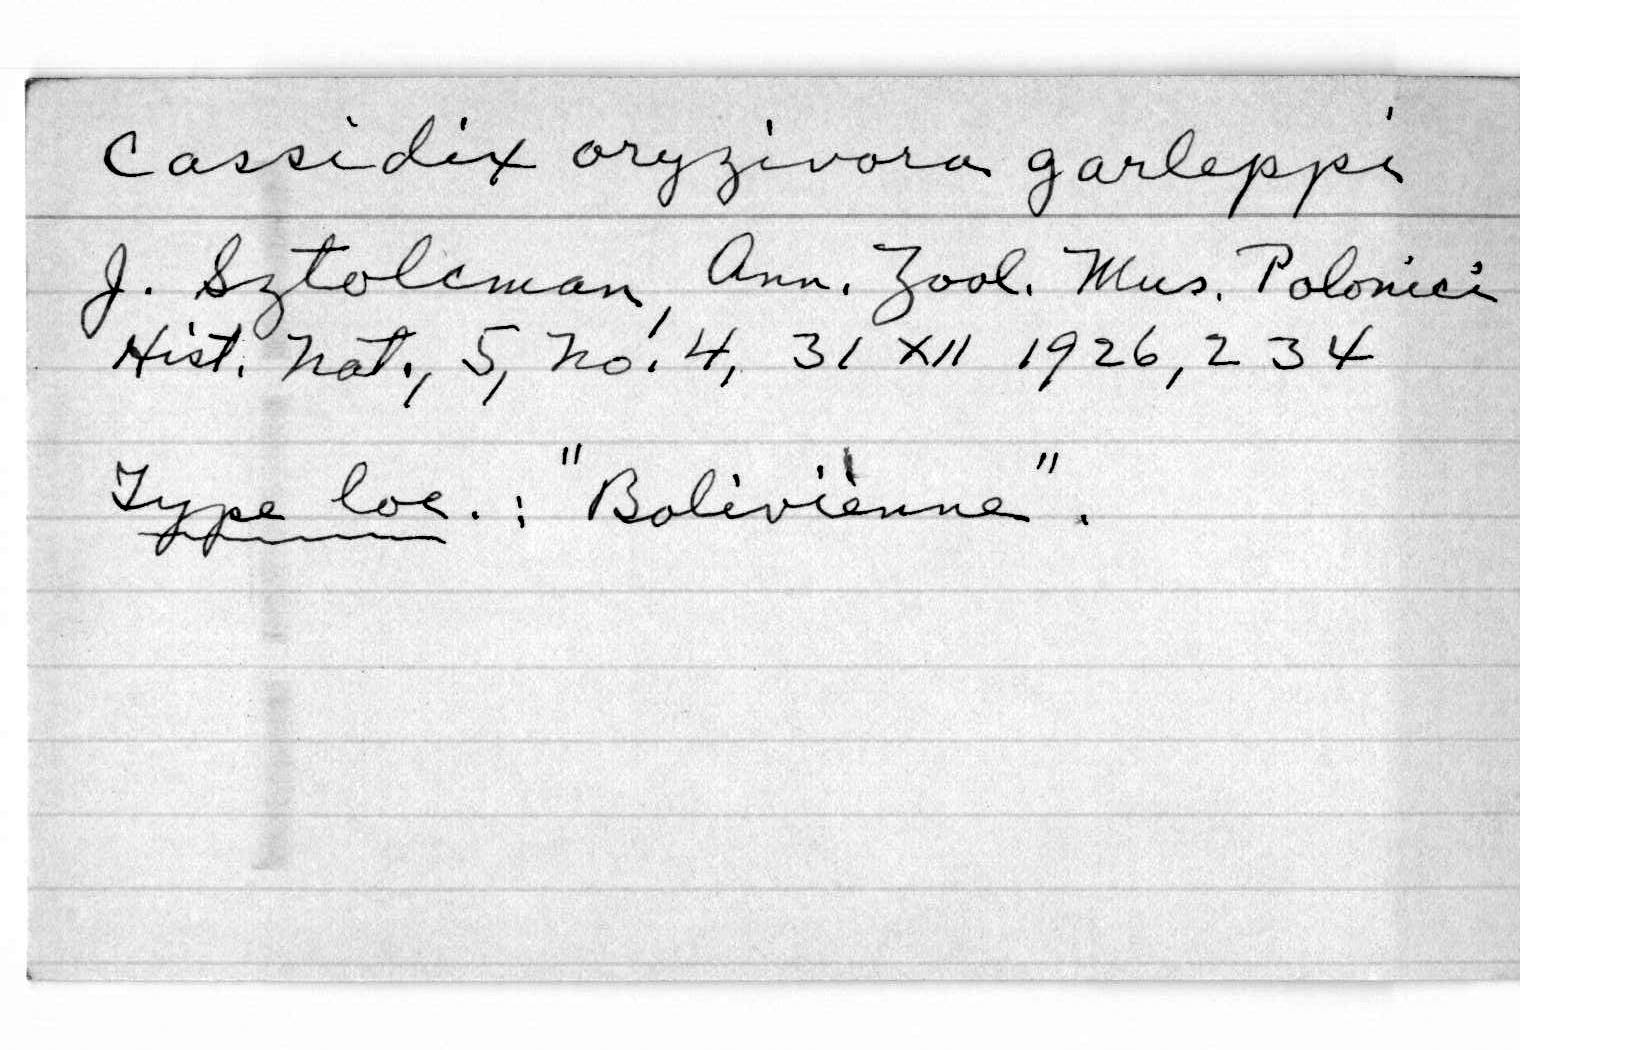 Cassidix oryzivora garleppi
J. Sztolcman, Ann. Zool. Mus. Polonici
Hist. Nat., 5, No. 4, 31 XII 1926, 234
Type loc.: "Bolivienne".